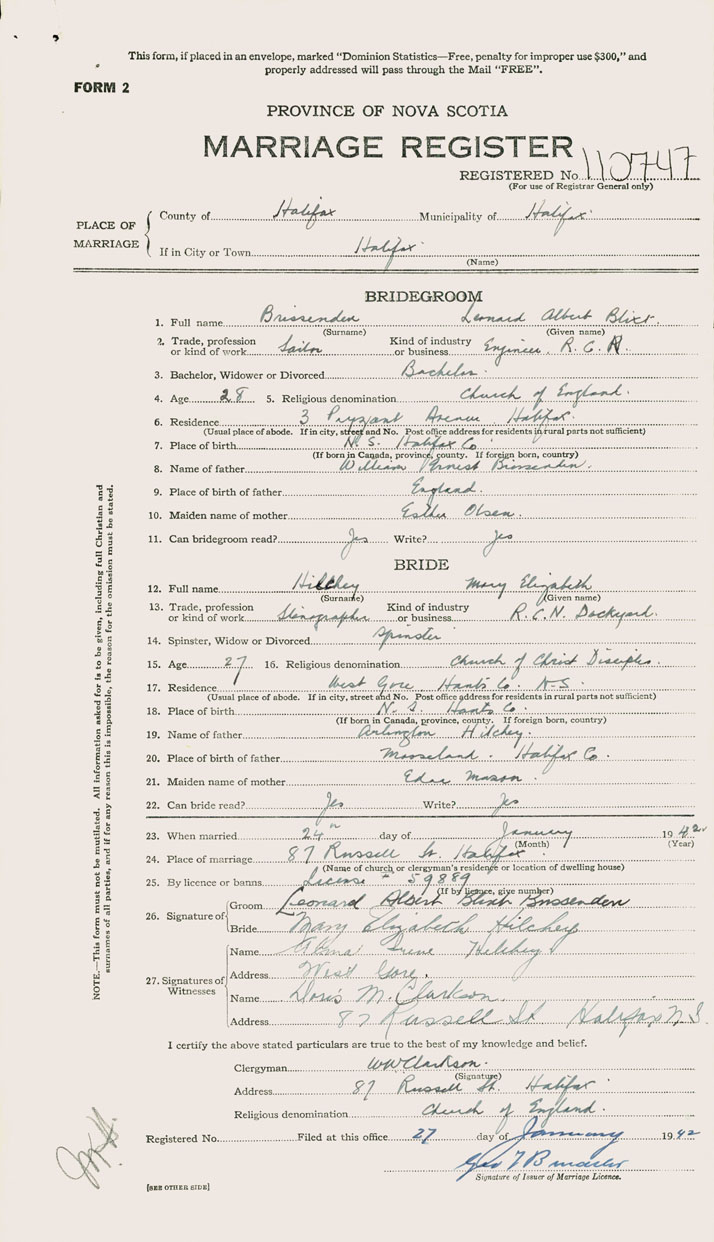 This form, if placed in an envelope, marked “Dominion Statistics—Free, penalty for improper use $300,” and
properly addressed will pass through the Mail “FREE”.
FORM 2
PROVINCE OF NOVA SCOTIA
MARRIAGE REGISTER
REGISTERED No. 110747
(For use of Registrar General only)
PLACE OF MARRIAGE
County of Halifax Municipality of Halifax
If in City or Town Halifax
(Name)
BRIDEGROOM
1. Full name Brissenden Leonard Albert Blixt
(Surname) (Given name)
2. Trade, profession or kind of work Sailor Kind of industry or business Engineer R.C.N.
3. Bachelor, Widower or Divorced Bachelor
4. Age 28 5. Religious denomination Church of England
6. Residence 3 Pryzant Avenue Halifax
(Usual place of abode. If in city, street and No. Post office address for residents in rural parts not sufficient)
7. Place of birth N.S. Halifax Co
(If born in Canada, province, county. If foreign born, country)
8. Name of father William Ernest Brissenden
9. Place of birth of father England
10. Maiden name of mother Esther Olsen
11. Can bridegroom read? Yes Write? Yes
BRIDE
12. Full name Hilchey Mary Elizabeth
(Surname) (Given name)
13. Trade, profession or kind of work Stenographer Kind of industry or business R.C.N. Dockyard
14. Spinster, Widow or Divorced Spinster
15. Age 27 16. Religious denomination Church of Christ Disciples
17. Residence West Gore Hants Co. N.S.
(Usual place of abode. If in city, street and No. Post office address for residents in rural parts not sufficient)
18. Place of birth N.S. Hants Co.
(If born in Canada, province, county. If foreign born, country)
19. Name of father Arlington Hilchey
20. Place of birth of father Mooseland Halifax Co.
21. Maiden name of mother Mason
22. Can bride read? Yes Write? Yes
23. When married 24th day of January 1942
(Month) (Year)
24. Place of marriage 87 Russell St. Halifax
(Name of church or clergyman's residence or location of dwelling house)
25. By licence or banns License # 59889
(If by licence, give number)
26. Signature of
Groom Leonard Albert Blixt Brissenden
Bride Mary Elizabeth Hilchey
27. Signatures of Witnesses
Name Irene Hilchey
Address West Gore.
Name Doris M. Clarkson
Address 87 Russell St Halifax N.S.
I certify the above stated particulars are true to the best of my knowledge and belief.
Clergyman WW Clarkson
(Signature)
Address 87 Russell St. Halifax
Religious denomination Church of England
Registered No. Filed at this office 27 day of January 1942
Geo
Signature of Issuer of Marriage Licence.
[SEE OTHER SIDE]
NOTE.—This form must not be mutilated. All information asked for is to be given, including full Christian and
surnames of all parties, and if for any reason this is impossible, the reason for the omission must be stated.